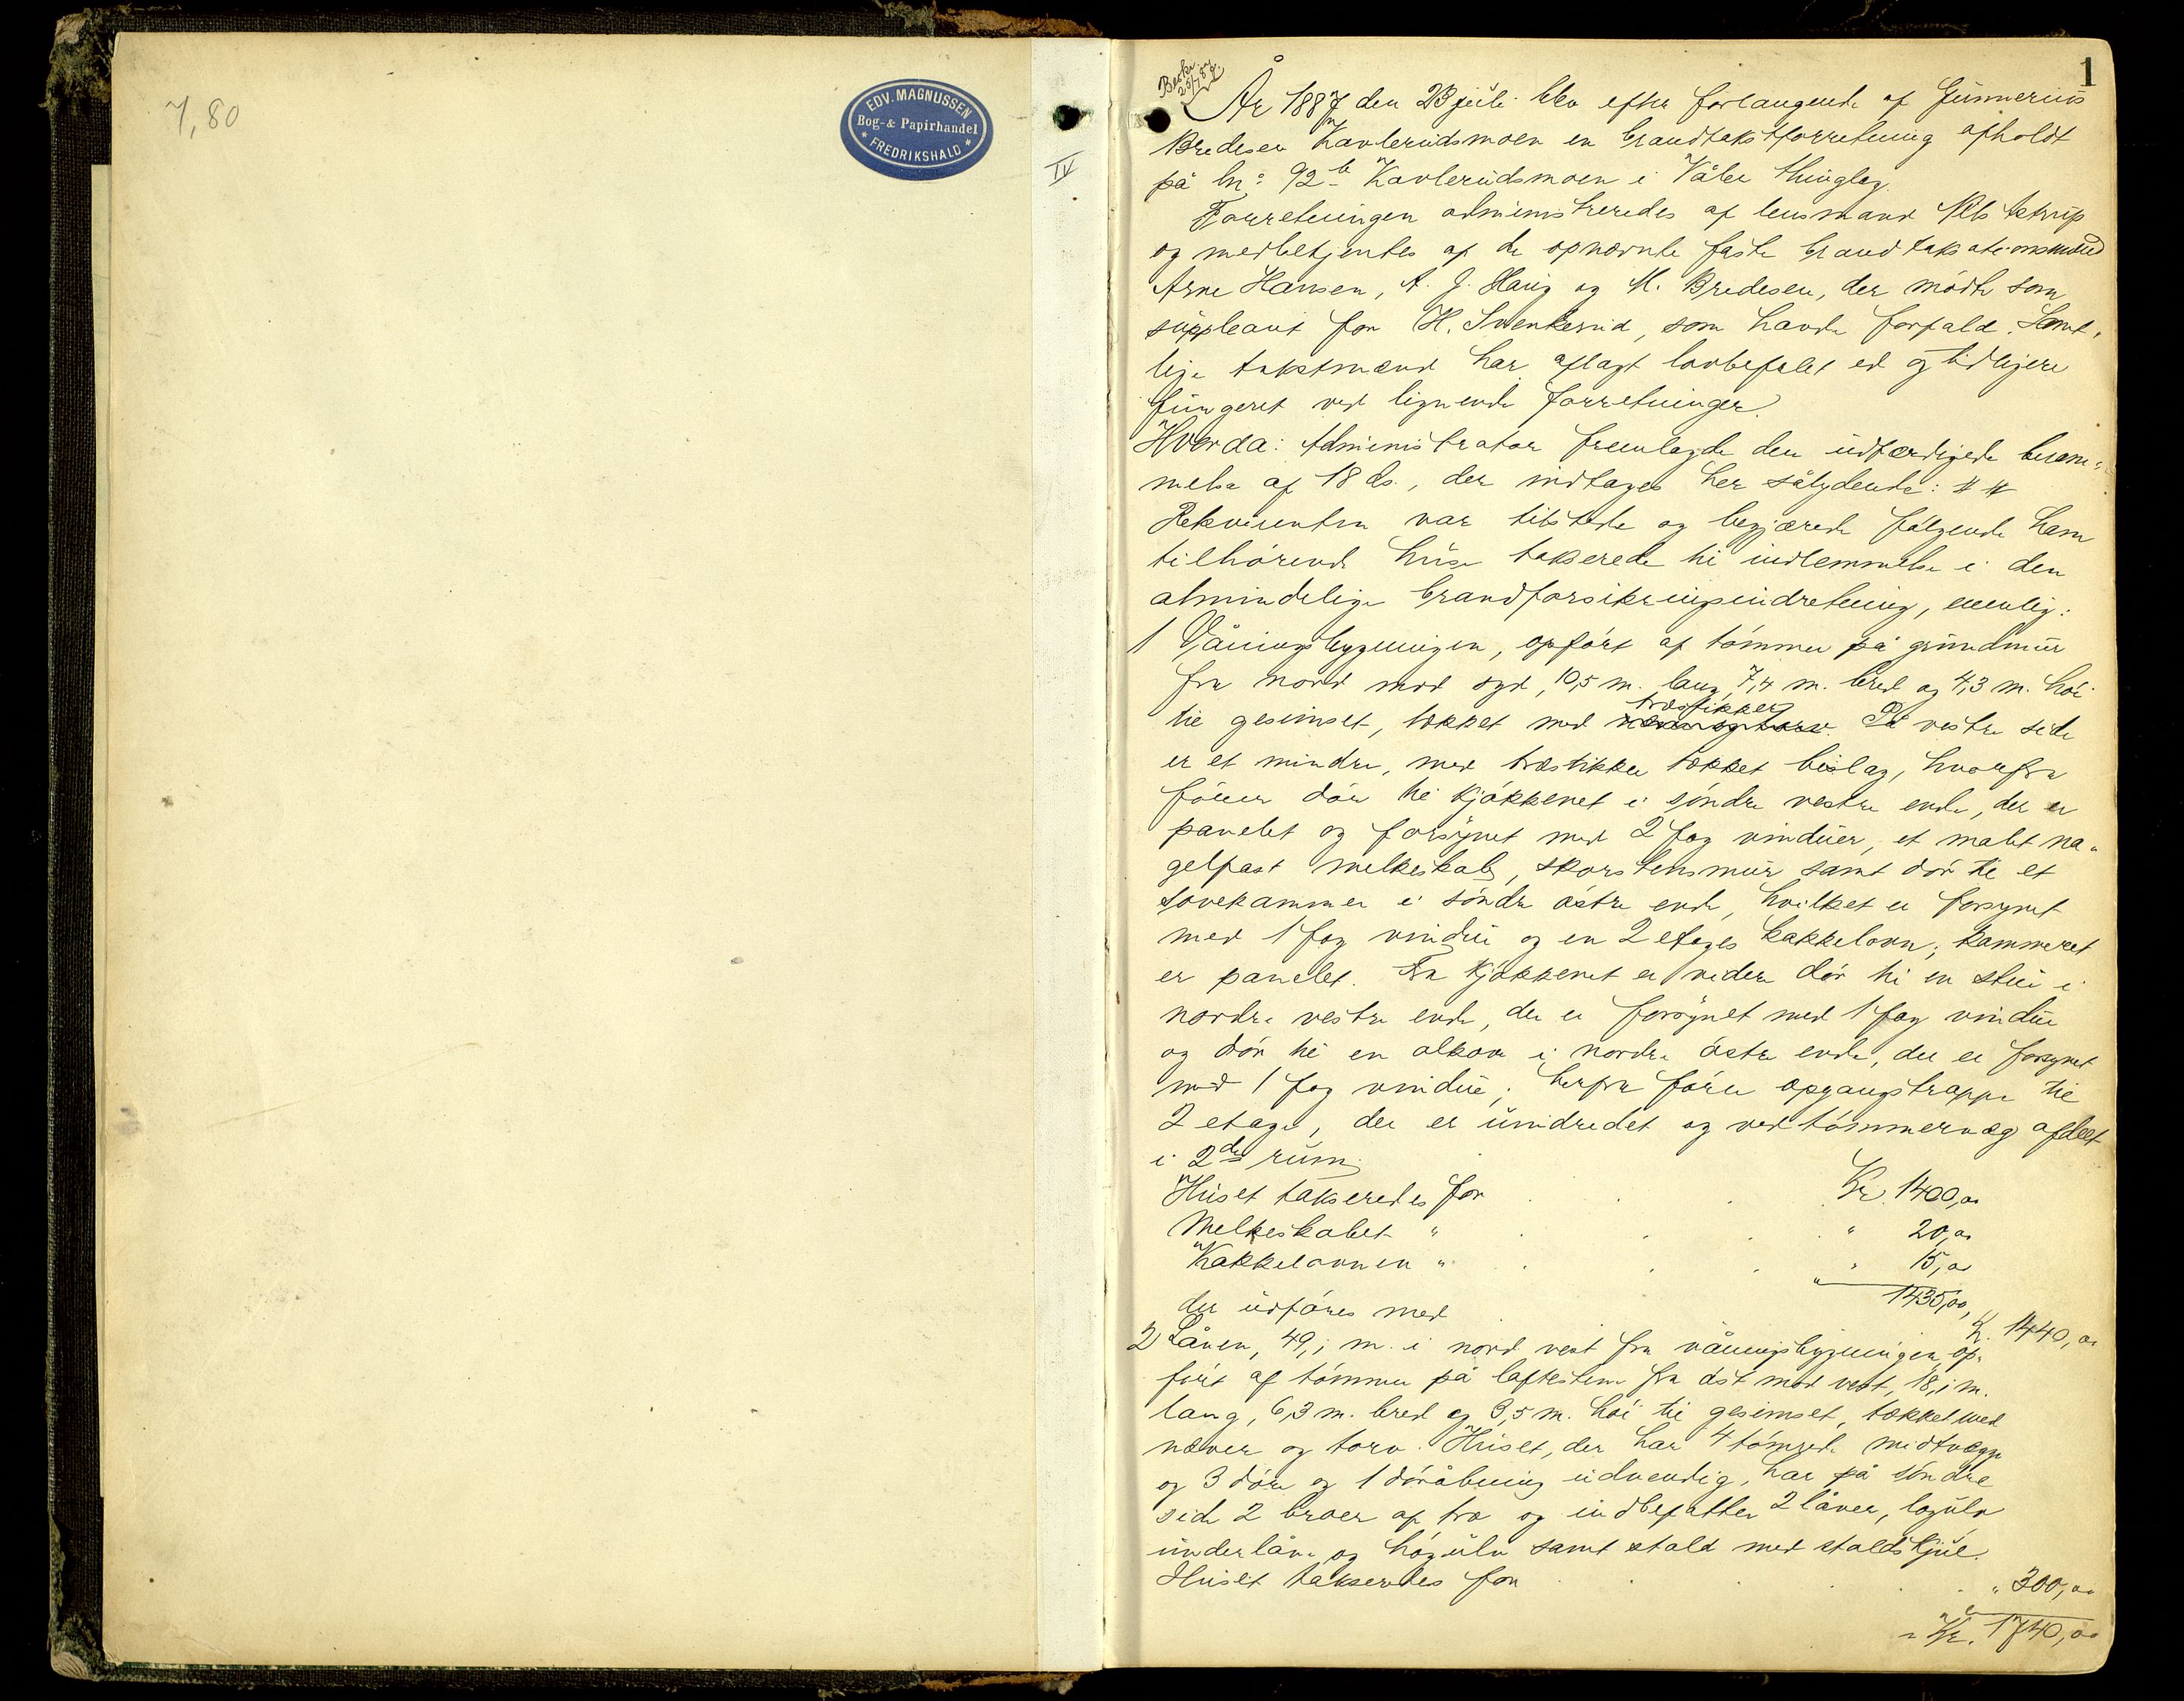 7,80
EDV. MAGNUSSEN
Bog- & Papirhandel
* FREDRIKSHALD *
IV
1
Beskr.
25/7 87.
År 1887 den 23 juli blev efter forlangende af Gunnerius
Bredesen Kavlerudsmoen en brandtakstforretning afholdt
på bn: 92 b Kavlerudsmoen i Våler thinglag.
Forretningen administreredes af lensmand
og medbetjentes af de opnævnte faste brandtaksationsmænd
Arne Hansen, A. J. Haug og M. Bredesen, der mødte som
suppleant for H. Svenkerud, som havde forfald. Samt-
lige takstmænd har aflagt lovbefalet ed og tidligere
fungeret ved lignende forretninger.
Hvorda: Administrator fremlagde den udfærdigede beram-
melse af 18 ds., der indtages her sålydende: # #
Rekvirenten var tilstede og begjærede følgende ham
tilhørende huse takserede til indlemmelse i den
almindelige brandforsikringsindretning, nemlig:
1 Våningsbygningen, opført af tømmer på grundmur
fra nord mod syd, 10,5 m. lang, 7,4 m. bred og 4,3 m. høi
træstikker
til gesimset, tækket med næver og torv. På vestre side
er et mindre, med træstikker tækket bislag, hvorfra
fører dør til kjøkkenet i søndre vestre ende, der er
panelet og forsynet med 2 fag vinduer, et malet na-
gelfast melkeskab, skorstensmur samt dør til et
sovekammer i søndre østre ende, hvilket er forsynet
med 1 fag vindu og en 2 etages kakkelovn; kammeret
er panelet. Fra kjøkkenet er videre dør til en stue i
nordre vestre ende, der er forsynet med 1 fag vindue
og dør til en alkove i nordre østre ende, der er forsynet
med 1 fag vindue; herfra fører opgangstrappe til
2 etage, der er uindredet og ved tømmervæg afdelt
i 2de rum.
Huset takseredes for . . . Kr. 1400,00
Melkeskabet " . . . " 20,00
Kakkelovnen " . . . " 15,00
1435,00,
der udføres med . Kr. 1440,00
2 Låven, 49,1 m. i nord vest fra våningsbygningen, op-
ført af tømmer på laftestene fra øst mod vest, 18,1 m.
lang, 6,3 m. bred og 3,5 m. høi til gesimset, tækket med
næver og torv. Huset, der har 4 tømrede midtvægge
og 3 døre og 1 døråbning udvendig, har på søndre
side 2 broer af træ og indbefatter 2 låver, logulv
underlåve og høgulv samt stald med staldskjul.
Huset takseredes for . . . . " 300,00
Kr. 1740,00